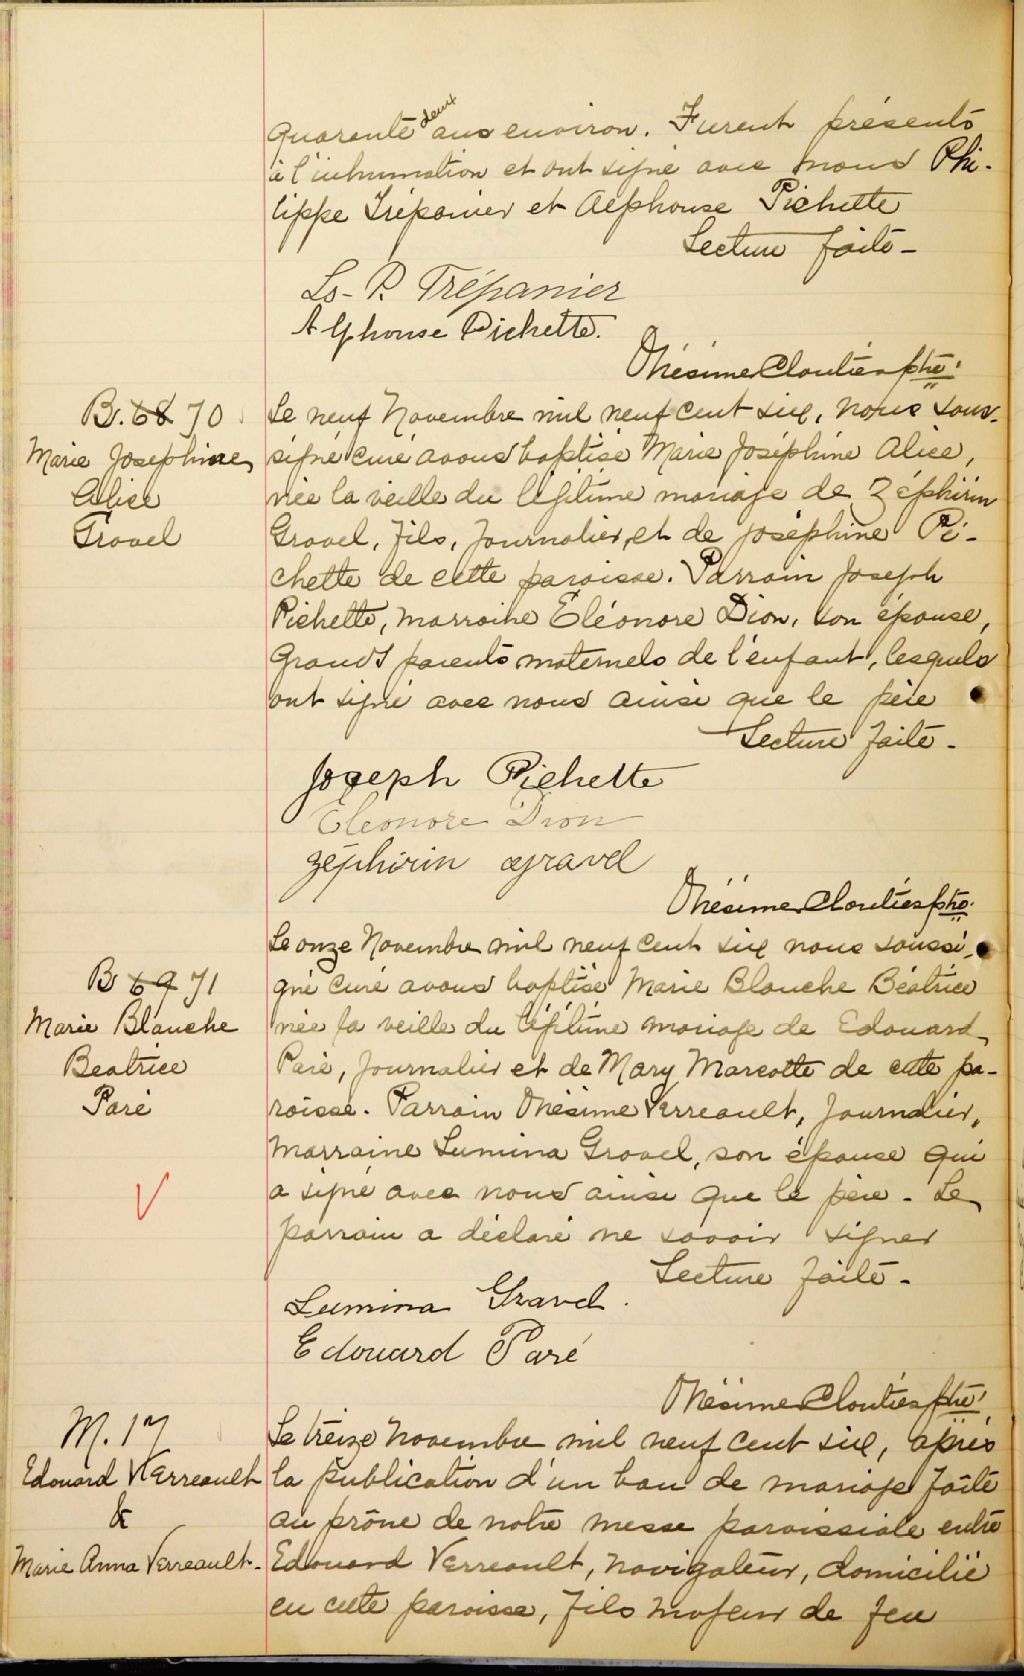 quarante deux ans environ. Furent présents
à l'inhumation et ont signé avec nous Phi-
lippe Trépanier et Alphonse Pichette
Lecture faite -
Ls - P. Trépanier
Alphonse Pichette.
Onésime Cloutier ptre.
B. 68 70
Marie Josephine
Alice
Gravel
Le neuf Novembre mil neuf cent six, nous sous-
signé curé avons baptisé Marie Joséphine Alice,
née la veille du légitime mariage de Zéphirin
Gravel, fils, journalier, et de Joséphine Pi-
chette de cette paroisse. Parrain Joseph
Pichette, marraine Éléonore Dion, son épouse,
Grands parents maternels de l'enfant, lesquels
ont signé avec nous ainsi que le père
Lecture faite -
Joseph Pichette
Eleonore Dion
Zéphirin Gravel
Onésime Cloutier ptre.
B 69 71
Marie Blanche
Beatrice
Paré
Le onze Novembre mil neuf cent six nous soussi-
gné curé avons baptisé Marie Blanche Béatrice
née la veille du légitime mariage de Edouard
Paré, journalier et de Mary Marcotte de cette pa-
roisse. Parrain Onésime Verreault, journalier,
marraine Lumina Gravel, son épouse qui
a signé avec nous ainsi que le père - Le
parrain a déclaré ne savoir signer
Lecture faite -
Lumina Gravel.
Edouard Paré
Onésime Cloutier ptre.
M. 17
Edouard Verreault
&
Marie Anna Verreault -
Le treize Novembre mil neuf cent six, après
la publication d'un ban de mariage faite
au prône de notre messe paroissiale entre
Edouard Verreault, navigateur, domicilié
en cette paroisse, fils majeur de feu